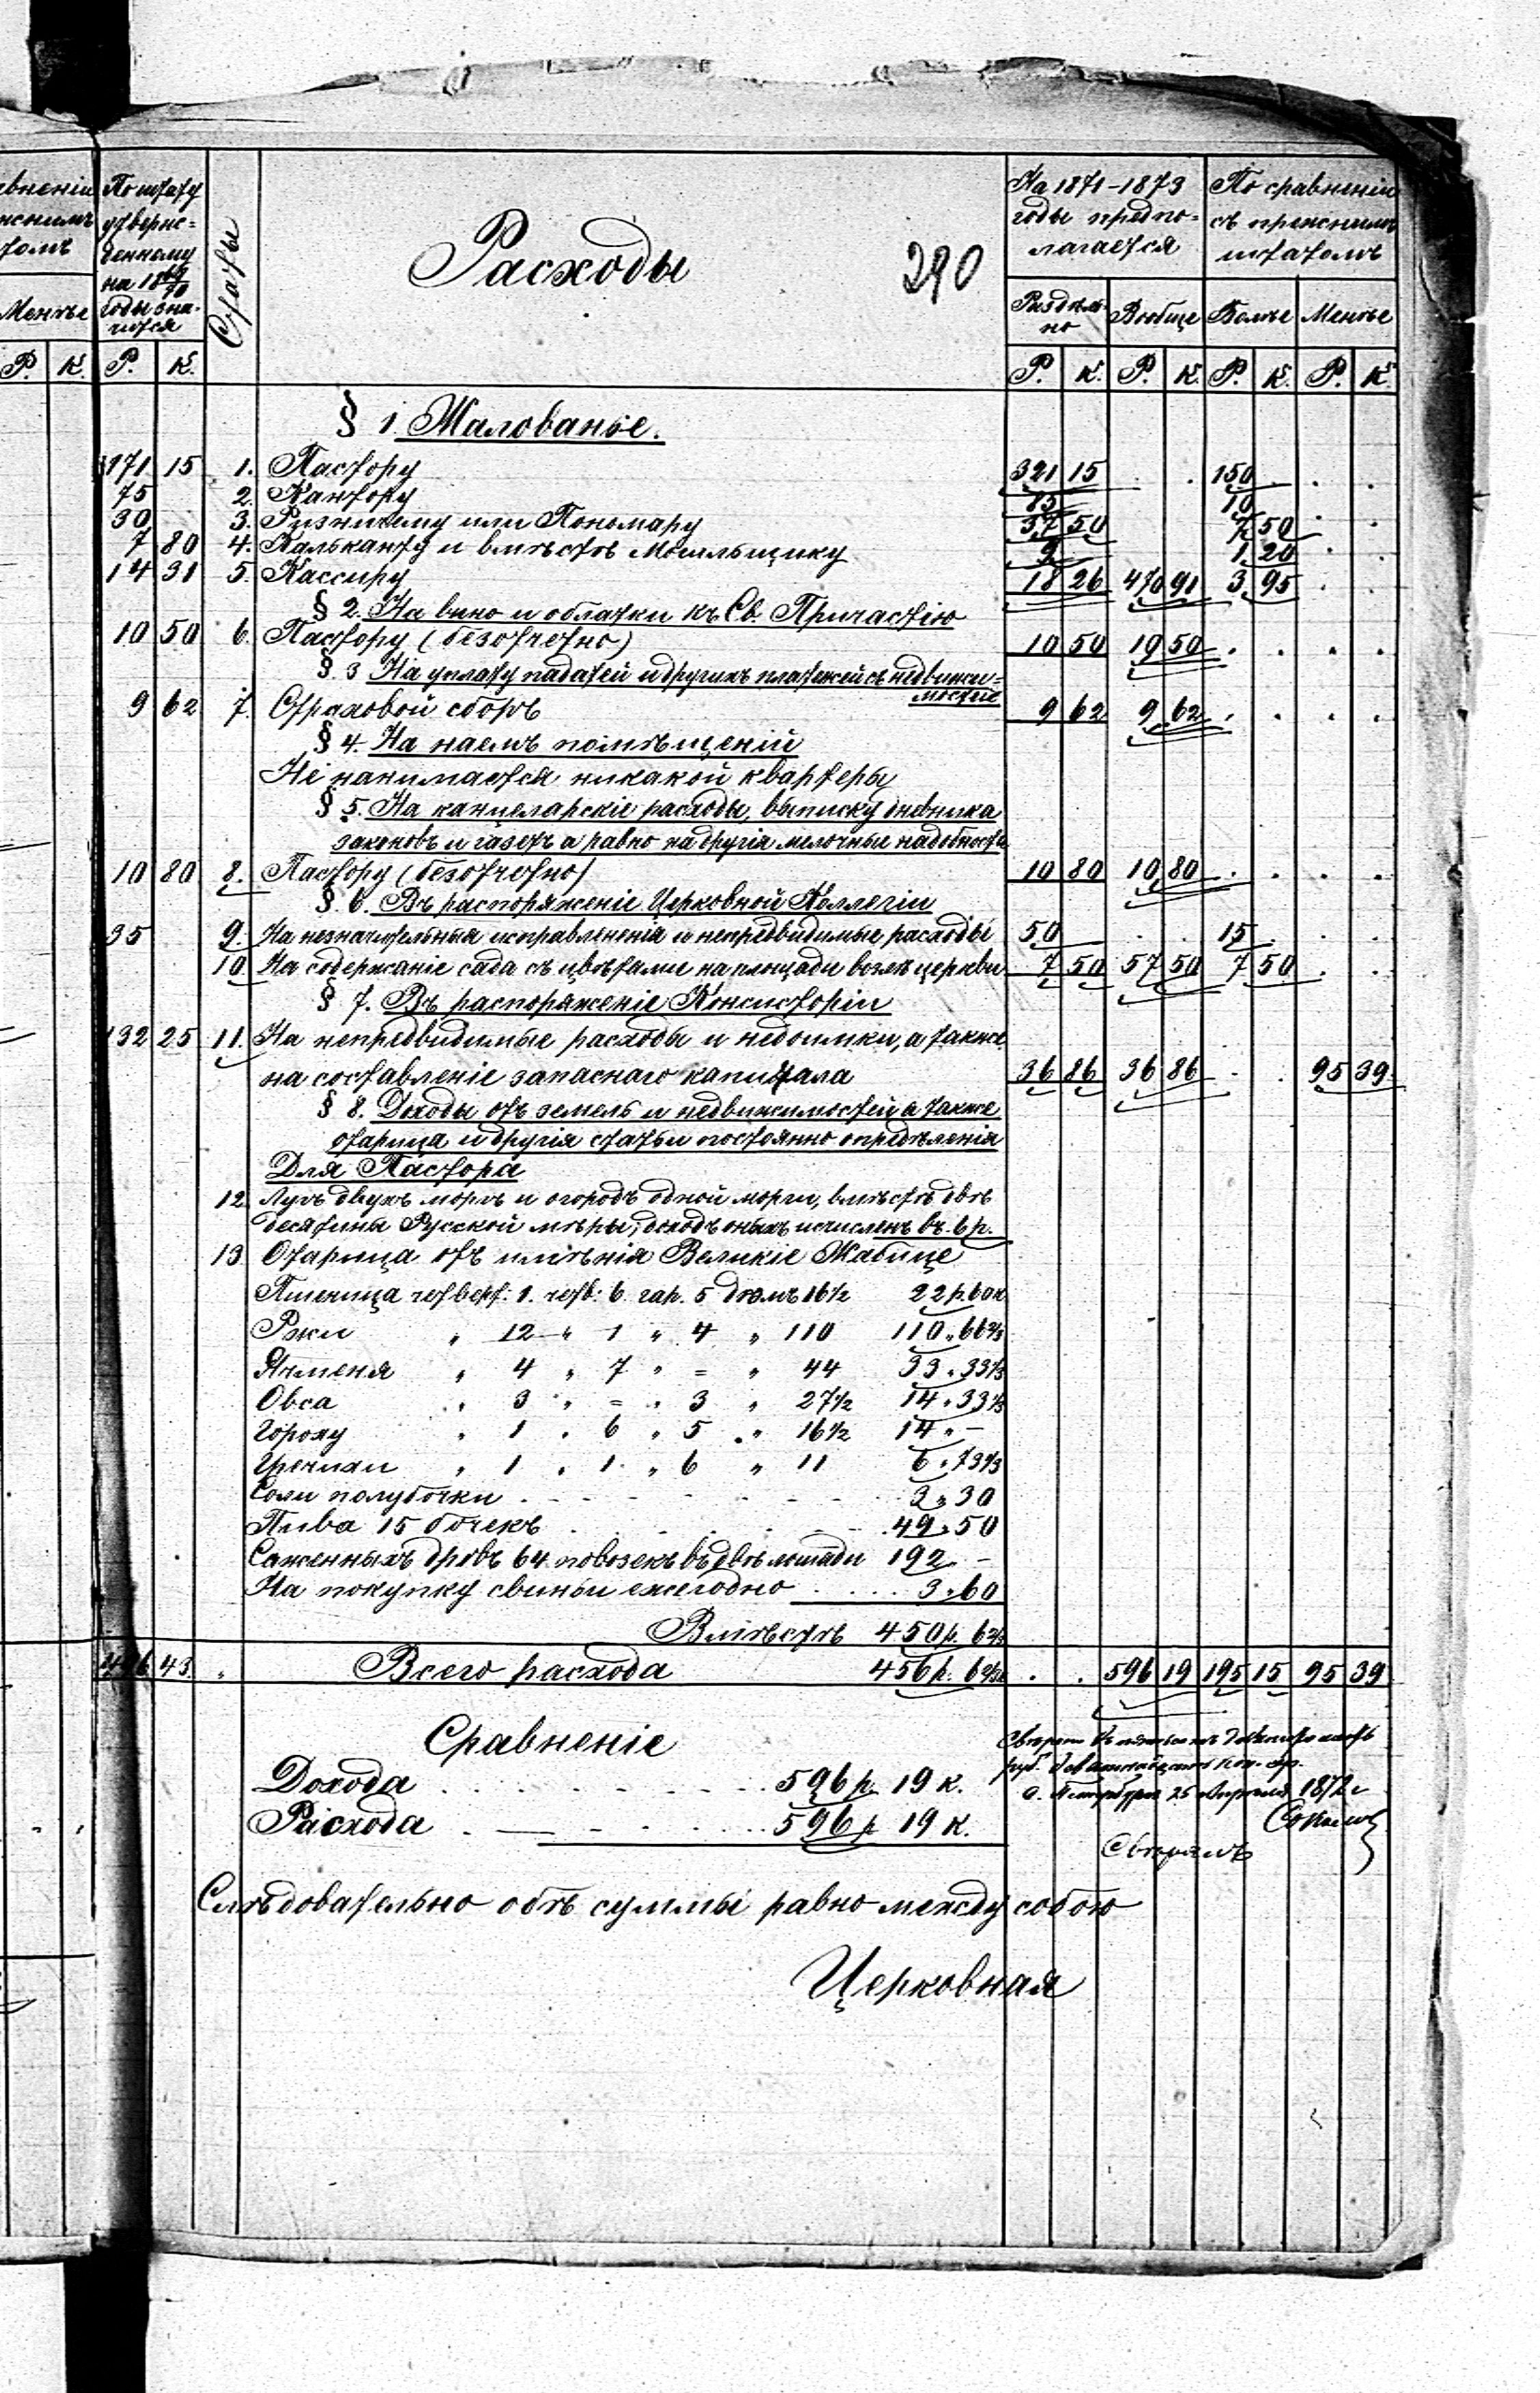 По штату На 1871-1873 По сравненію
утверж= годы предпо- съ прежнимъ
денному лагается штатомъ
на 1869/70
Менѣе годы зна- Статьи Расходы 290 Раздѣль- Вообще Болѣе Менѣе
чится но
Р. К. Р. К. Р. К. Р. К. Р. К. Р. К.
§ 1. Жалованье.
171 15 1. Пастору 321 15 . . 150 . .
75 2. Кантору 85 10
30 3. Ризничему или Пономарю 37 50 7 50 . .
7 80 4. Кальканту и вмѣстѣ Могильщику 9 1 20 . .
14 31 5. Кассиру 18 26 470 91 3 95 . .
§ 2. На вино и облатки къ Св. Причастію
10 50 6. Пастору (безотчетно) 10 50 10 50 . . . .
§. 3 На уплату падатей и другихъ платежей съ недвижи=
мостей
9 62 7. Страховой сборъ 9 62 9 62 . . . .
§ 4. На наемъ помѣщеній
Не нанимается никакой квартеры
§ 5. На канцеларскіе расходы, выписку дневника
законовъ и газетъ а равно на другія мелочные надобности
10 80 8. Пастору (безотчетно) 10 80 10 80 . . . .
§. 6. Въ распоряженіе Церковной Коллегіи
35 9. На незначительныя исправленія и непредвидимые расходы 50 . . 15 . .
10 На содержаніе сада съ цвѣтами на площади возлѣ церкви 7 50 57 50 7 50 . .
§ 7. Въ распоряженіе Консисторіи
132 25 11. На непредвидимые расходы и недоимки, а также
на составленіе запаснаго капитала 36 86 36 86 . . 95 39
§ 8. Доходы отъ земель и недвижимостей а также
отарица и другія статьи постоянно опредѣленія
Для Пастора
12. Лугъ двухъ моргъ и огородъ одной морги, вмѣстѣ двѣ
десятины Русской мѣры; доходъ оныхъ исчисленъ въ 6 р.
13 Отарица отъ имѣнія Великіе
Пшеница четверт: 1. четв: 6 гар. 5 22 р 60 к
Ржи " 12 " 1 " 4 " 110 110 " 66 2/3
Ячменя " 4 " 7 " = " 44 33 " 33 1/3
Овса " 3 " = " 3 " 27 1/2 14 " 33 1/3
Гороху " 1 " 6 " 5 " 16 1/2 14 " -
Гречихи " 1 " 1 " 6 " 11 6 " 73 1/3
Соли полубочки . - - - - - 3 " 30
Пива 15 бочекъ . . - - - 49 " 50
Саженныхъ дровъ 64 повозекъ въ двѣ лошади 192 -
На покупку свиньи ежегодно . . . . 3 " 60
Вмѣстѣ 450 р. 6 2/3
426 43 " Всего расхода 456 р. 6 2/3 . . 596 19 195 15 95 39
Сравненіе
руб. девятнадцать коп. ср.
Дохода . . . . . . 596 р. 19 к.
25 Апрѣля 1872 г
Расхода . - . . . 596 р 19 К.
Слѣдовательно обѣ суммы равно между собою
Церковная